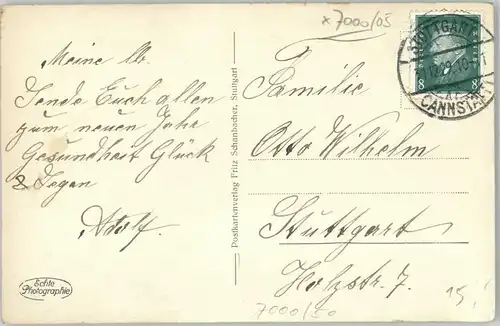 x 7000/05
Meine lb.
Sende Euch allen
zum neuen Jahr
Gesundheit Glück
& Segen
Adolf.
Echte
Photographie
Postkartenverlag Fritz Schanbacher, Stuttgart
STUTTGART
CANNSTATT
8 8
Familie
Otto Wilhelm
Stuttgart
Holzstr. 7.
7000/50
15,-